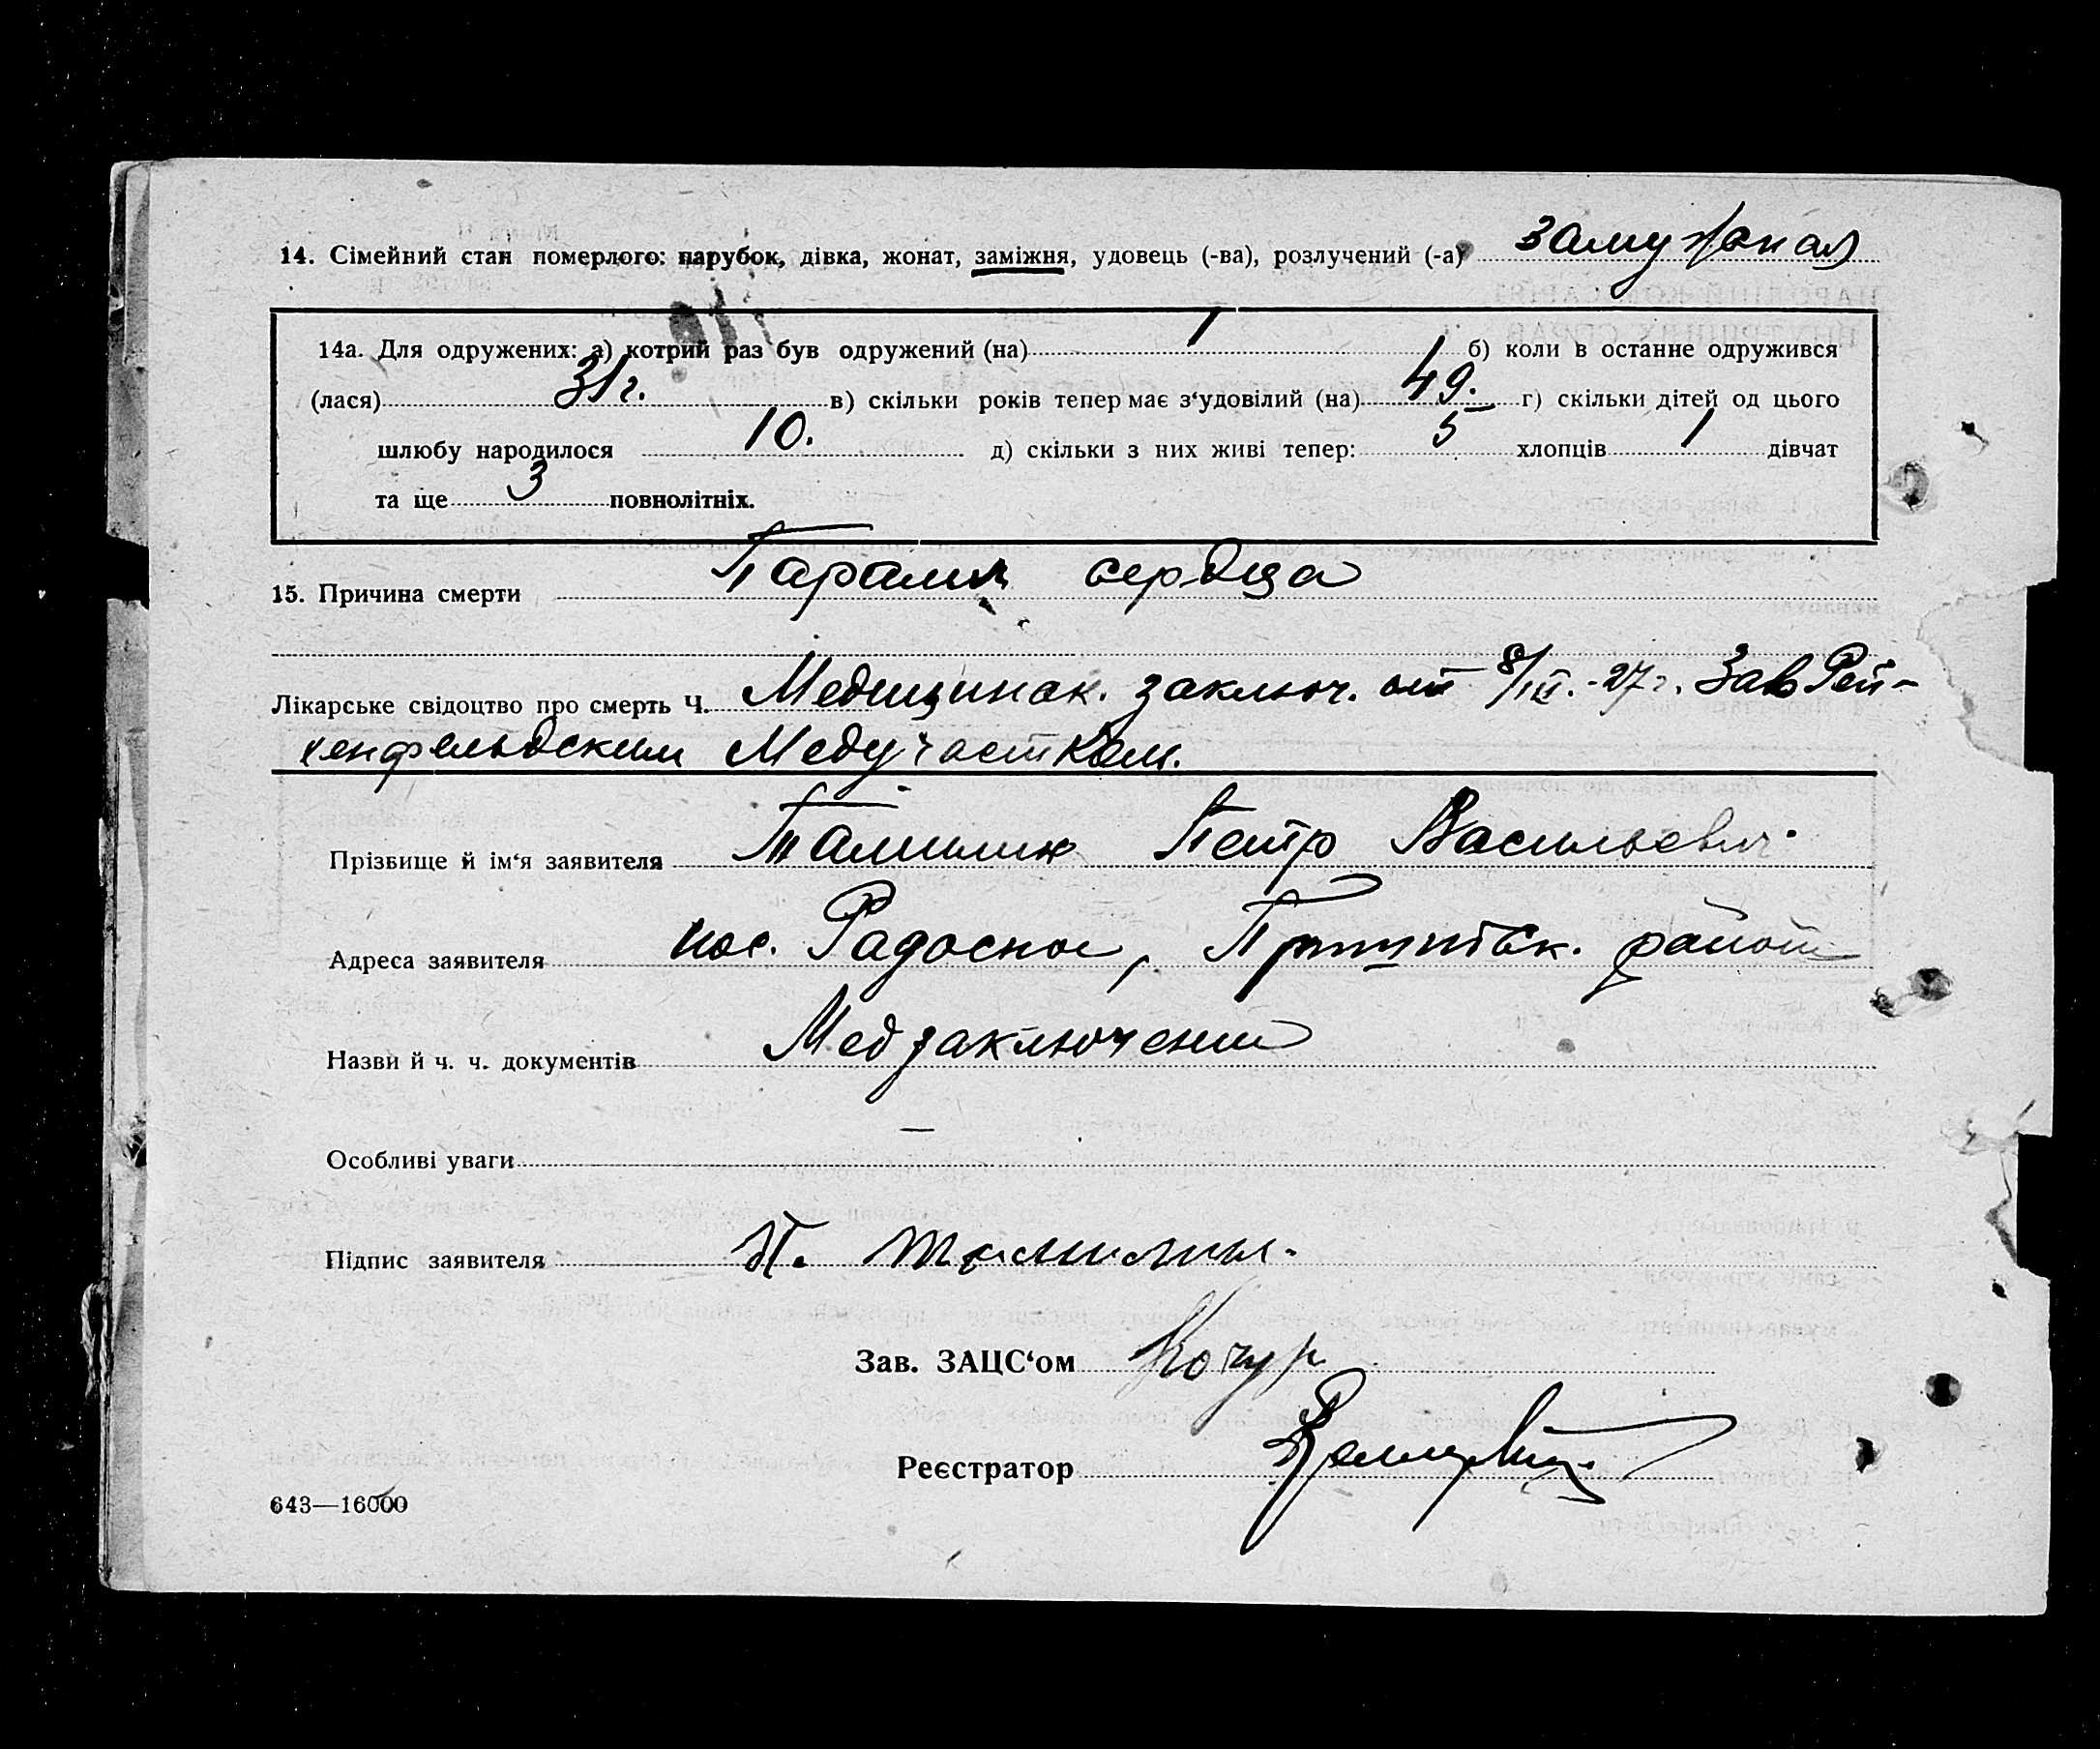 14. Сімейний стан померлого: парубок, дівка, жонат, заміжня, удовець (-ва), розлучений (-а) замужная
14а. Для одружених: а) котрий раз був одружений (на) 1 б) коли в останне одружився
(лася) 31 г. в) скільки років тепер має з‘удовілий (на) 49. г) скільки дітей од цього
шлюбу народилося 10. д) скільки з них живі тепер: 5 хлопців 1 дівчат
та ще 3 повнолітніх.
15. Причина смерти Паралич сердца
Лікарське свідоцтво про смерть Ч. Медицинск. заключ. от 8/III.-27 г. Зав Рей-
хенфельдским Медучастком.
Прізвище й ім‘я заявителя Тамилин Петр Васильевич
Адреса заявителя пос. Радосное, Пришибск. район
Назви й ч. ч. документів Медзаключение
Особливі уваги —
Підпис заявителя П. Тамилин.
Зав. ЗАЦС‘ом Кочур
Реєстратор
643—16000